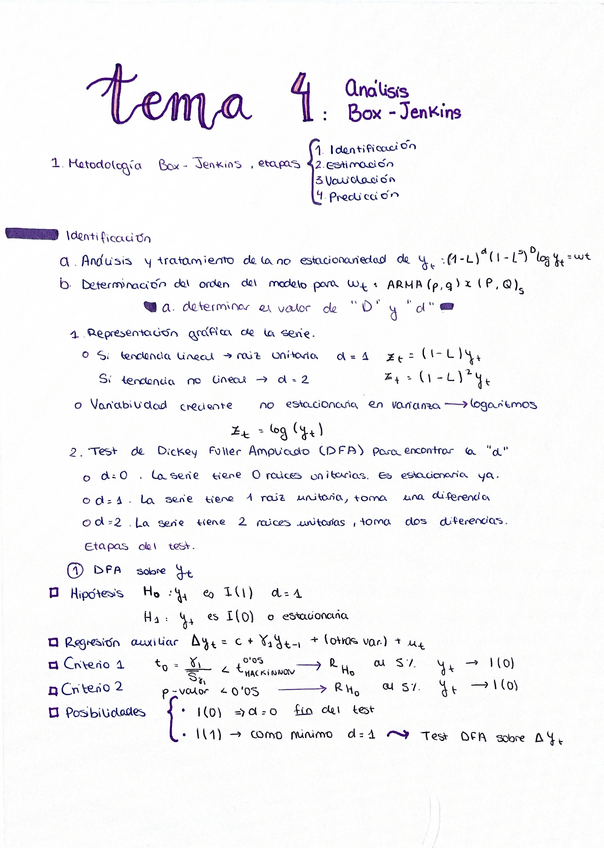 tema 4: Análisis Box-Jenkins
1. Metodología Box-Jenkins, etapas { 1. Identificación
2. Estimación
3 Validación
4. Predicción
Identificación
a. Análisis y tratamiento de la no estacionariedad de y_t : (1-L)^d (1-L^s)^D log y_t = wt
b. Determinación del orden del modelo para w_t = ARMA (p,q) x (P,Q)_s
a. determinar el valor de "D" y "d"
1. Representación gráfica de la serie.
o Si tendencia lineal → raiz unitaria d = 1 z_t = (1-L)y_t
Si tendencia no lineal → d = 2 z_t = (1-L)^2 y_t
o Variabilidad creciente no estacionaria en varianza → logaritmos
z_t = log (y_t)
2. Test de Dickey Fuller Ampliado (DFA) para encontrar la "d"
o d=0. La serie tiene 0 raices unitarias. Es estacionaria ya.
o d=1. La serie tiene 1 raiz unitaria, toma una diferencia
o d=2. La serie tiene 2 raices unitarias, toma dos diferencias.
Etapas del test.
① DFA sobre y_t
□ Hipótesis H_0 : y_t es I(1) d=1
H_1 : y_t es I(0) o estacionaria
□ Regresión auxiliar Δy_t = c + γ_1 y_{t-1} + (otras var.) + u_t
□ Criterio 1 t_0 = γ_1 / S_{γ1} < t^{0'05}_{MACKINNON} → R_{H_0} al 5% y_t → I(0)
□ Criterio 2 p-valor < 0'05 → R_{H_0} al 5% y_t → I(0)
□ Posibilidades { · I(0) ⇒ d=0 fin del test
· I(1) → como mínimo d=1 ⇝ Test DFA sobre Δy_t